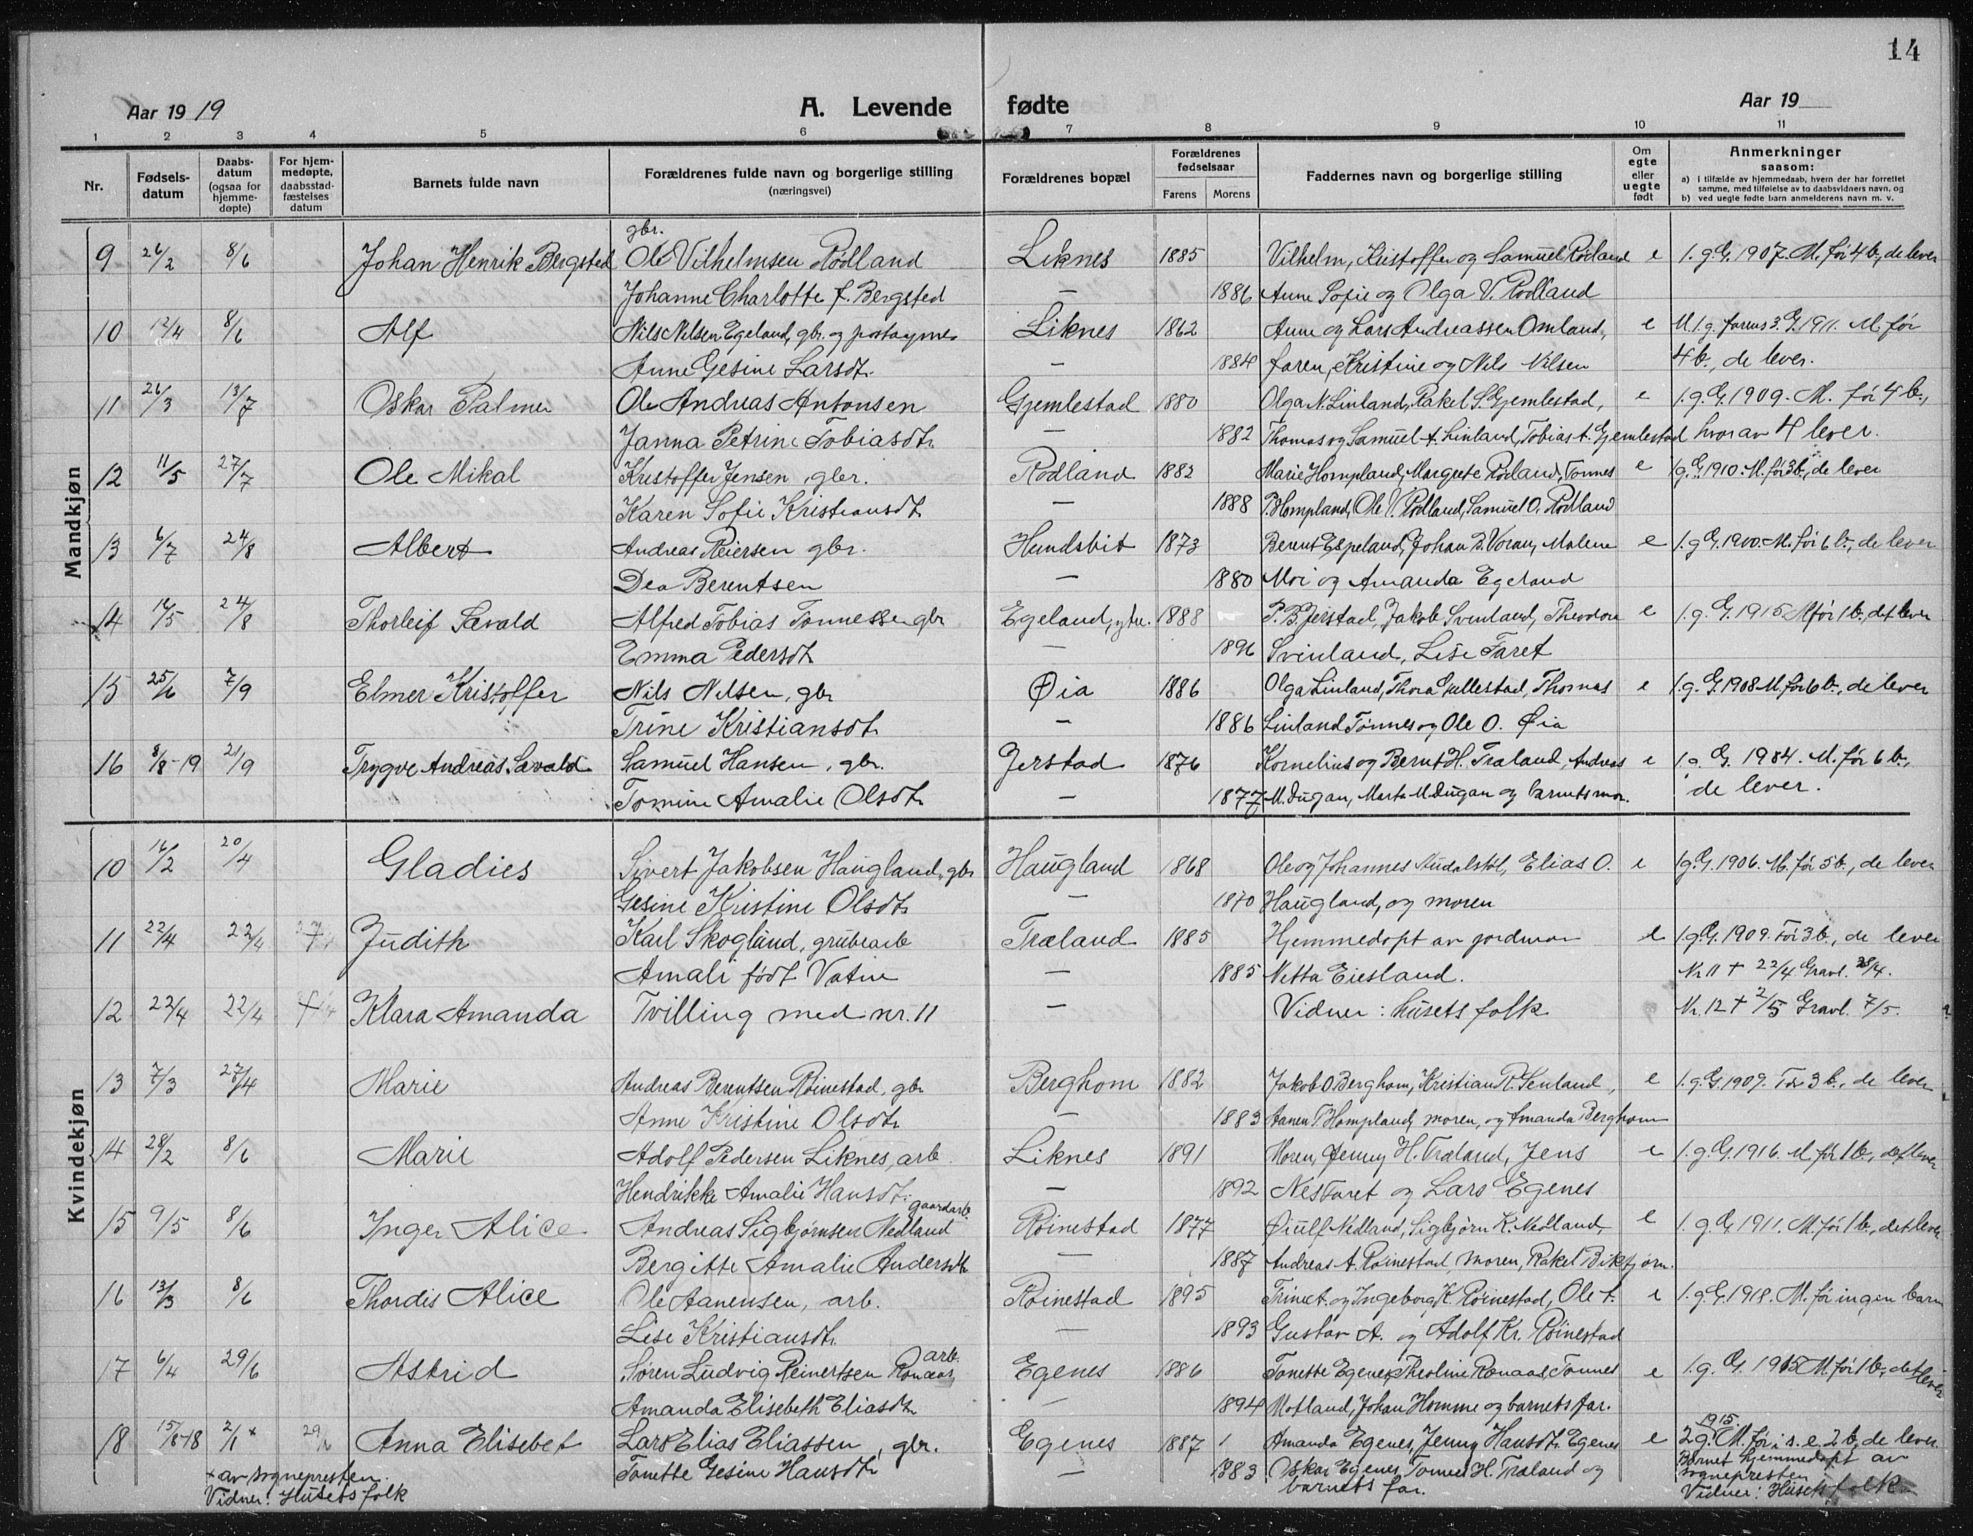 14
Aar 1919 A. Levende fødte Aar 19
1 2 3 4 5 6 7 8 9 10 11
Nr. Fødsels-datum Daabs-datum (ogsaa for hjemme-døpte) For hjem-medøpte, daabsstad-fæstelses datum Barnets fulde navn Forældrenes fulde navn og borgerlige stilling (næringsvei) Forældrenes bopæl Forældrenes fødselsaar Farens Morens Faddernes navn og borgerlige stilling Om egte eller uegte født Anmerkninger saasom: a) i tilfælde av hjemmedaab, hvem der har forrettet samme, med tilføielse av to daabsvidners navn, og b) ved uegte fødte barn anmelderens navn m. v.
Mandkjøn
gbr.
9 26/2 8/6 Johan Henrik Bergsted Ole Vilhelmsen Rødland Liknes 1885 Vilhelm, Kristoffer og Samuel Rødland e 1.g.G. 1907. M. før 4 b., de lever
Johanne Charlotte f. Bergsted — 1886 Anne Sofie og Olga V. Rødland
10 12/4 8/6 Alf Nils Nilsen Egeland, gbr. og Liknes 1862 Anne og Lars Andreassen Omland, e M. 1.g. farens 3. G. 1911. M. før
Anne Gesine Larsdt. — 1884 faren, Kristine og Nils Nilsen 4 b., de lever.
11 26/3 13/7 Oskar Palmer Ole Andreas Antonsen Gjemlestad 1880 Olga N. Linland, Rakel S. Gjemlestad, e 1.g.G. 1909. M. før 4 b.,
Janna Petrine Tobiasdt. — 1882 Thomas og Samuel A. Linland, Tobias A. Gjemlestad hvorav 4 lever.
12 11/5 27/7 Ole Mikal Kristoffer Jensen, gbr. Rødland 1882 Marie Hompland, Margrete Rødland, Tønnes e 1g.G. 1910. M. før 3 b., de lever
Karen Sofie Kristiansdt. — 1888 P. Hompland, Ole V. Rødland, Samuel O. Rødland
13 6/7 24/8 Albert Andreas Reiersen gbr. Hundsbit 1873 Berent Espeland, Johan B. Voran, Malene e 1.g G. 1900. M. før 6 b., de lever
Dea Berentsen — 1880 Moi og Amanda Egeland
14 16/5 24/8 Thorleif Sævald Alfred Tobias Tønnessen gbr Egeland, ytre. 1888 P. B. Jerstad, Jakob Svinland, Theodora e 1.g.G. 1915 M før 1 b., det lever
Emma Pedersdt. — 1896 Svinland, Lise Faret
15 25/6 7/9 Elmer Kristoffer Nils Nilsen, gbr Øia 1886 Olga Linland, Thora Gullestad, Thomas e 1.g.G. 1908 M. før 6 b., de lever
Trine Kristiansdt. — 1886 Linland Tønnes og Ole O. Øia
16 8/8-19 21/9 Trygve Andreas Sævald Samuel Hansen, gbr. Jerstad 1876 Kornelius og Bernt H. Træland, Andreas e 1.g.G. 1984. M. før 6 b.,
Tomine Amalie Olsdt. — 1877 M. Dugan, Marta M. Dugan og barnets mor. de lever.
Kvindekjøn
10 16/2 20/4 Gladies Sivert Jakobsen Haugland, gbr Haugland 1868 Ole og Johannes Nudalstøl, Elias O. e 1g.G. 1906. M. før 5 b., de lever
Gesine Kristine Olsdt. — 1870 Haugland, og moren
11 22/4 22/4 Judith Karl Skogland, grubearb Træland 1885 Hjemmedøpt av jordmor e 1.g.G. 1909. Før 3 b., de lever
Amali født Vatne — 1885 Netta Eiesland. Nr 11 † 22/4 Gravl. 28/4.
12 22/4 22/4 Klara Amanda Tvilling med nr. 11 — Vidner: husets folk Nr. 12 † 2/5 Gravl. 7/5.
13 7/3 27/4 Marie Andreas Berentsen Røinestad, gbr Berghom 1882 Jakob O Berghom, Kristian R. Senland, e 1.g.G. 1909. Før 3 b., de lever
Anne Kristine Olsdt. — 1883 Aanen T. Hompland, moren, og Amanda Berghom
14 28/2 8/6 Marie Adolf Pedersen Liknes, arb. Liknes 1891 Moren, Jenny H. Træland, Jens e 1.g.G. 1916. M før 1 b., det lever
Hendrikke Amalie Hansdt. — 1892 Nesfaret og Lars Egenes
gaardarb.
15 9/5 8/6 Inger Alice Andreas Sigbjørnsen Nedland Røinestad 1877 Øiulf Nedland, Sigbjørn K. Nedland, e 1.g.G. 1911. M. før 1 b., det lever
Bergitte Amalie Andersdt. — 1887 Andreas A. Røinestad, moren, Rakel Birktjørn.
16 13/3 8/6 Thordis Alice Ole Aanensen, arb. Røinestad 1895 Trine A. og Ingeborg K. Røinestad, Ole A. e 1.g.G. 1918. M. før ingen barn
Lise Kristiansdt. — 1893 Gustav A. og Adolf Kr. Røinestad
arb.
17 6/4 29/6 Astrid Søren Ludvig Reinertsen Rønaas Egenes 1886 Tonette Egenes, Theoline Rønaas, Tønnes e 1.g.G. 1915 M. før 1 b., det lever
Amanda Elisebeth Eliasdt. — 1894 Motland, Johan Homme og barnets far.
18 15/8-18 2/1 × 29/6 Anna Elisebet Lars Elias Eliassen, gbr. Egenes 1887 Amanda Egenes, Jenny Hansdt. Egenes e 1915. 2 g. M. før i s. e. 2 b., de lever
Tonette Gesine Hansdt. — 1883 Oskar Egenes, Tønnes H. Træland og barnets far. Barnet hjemmedøpt av sognepresten
× av sognepresten.
Vidner: Husets folk Vidner: Husets folk